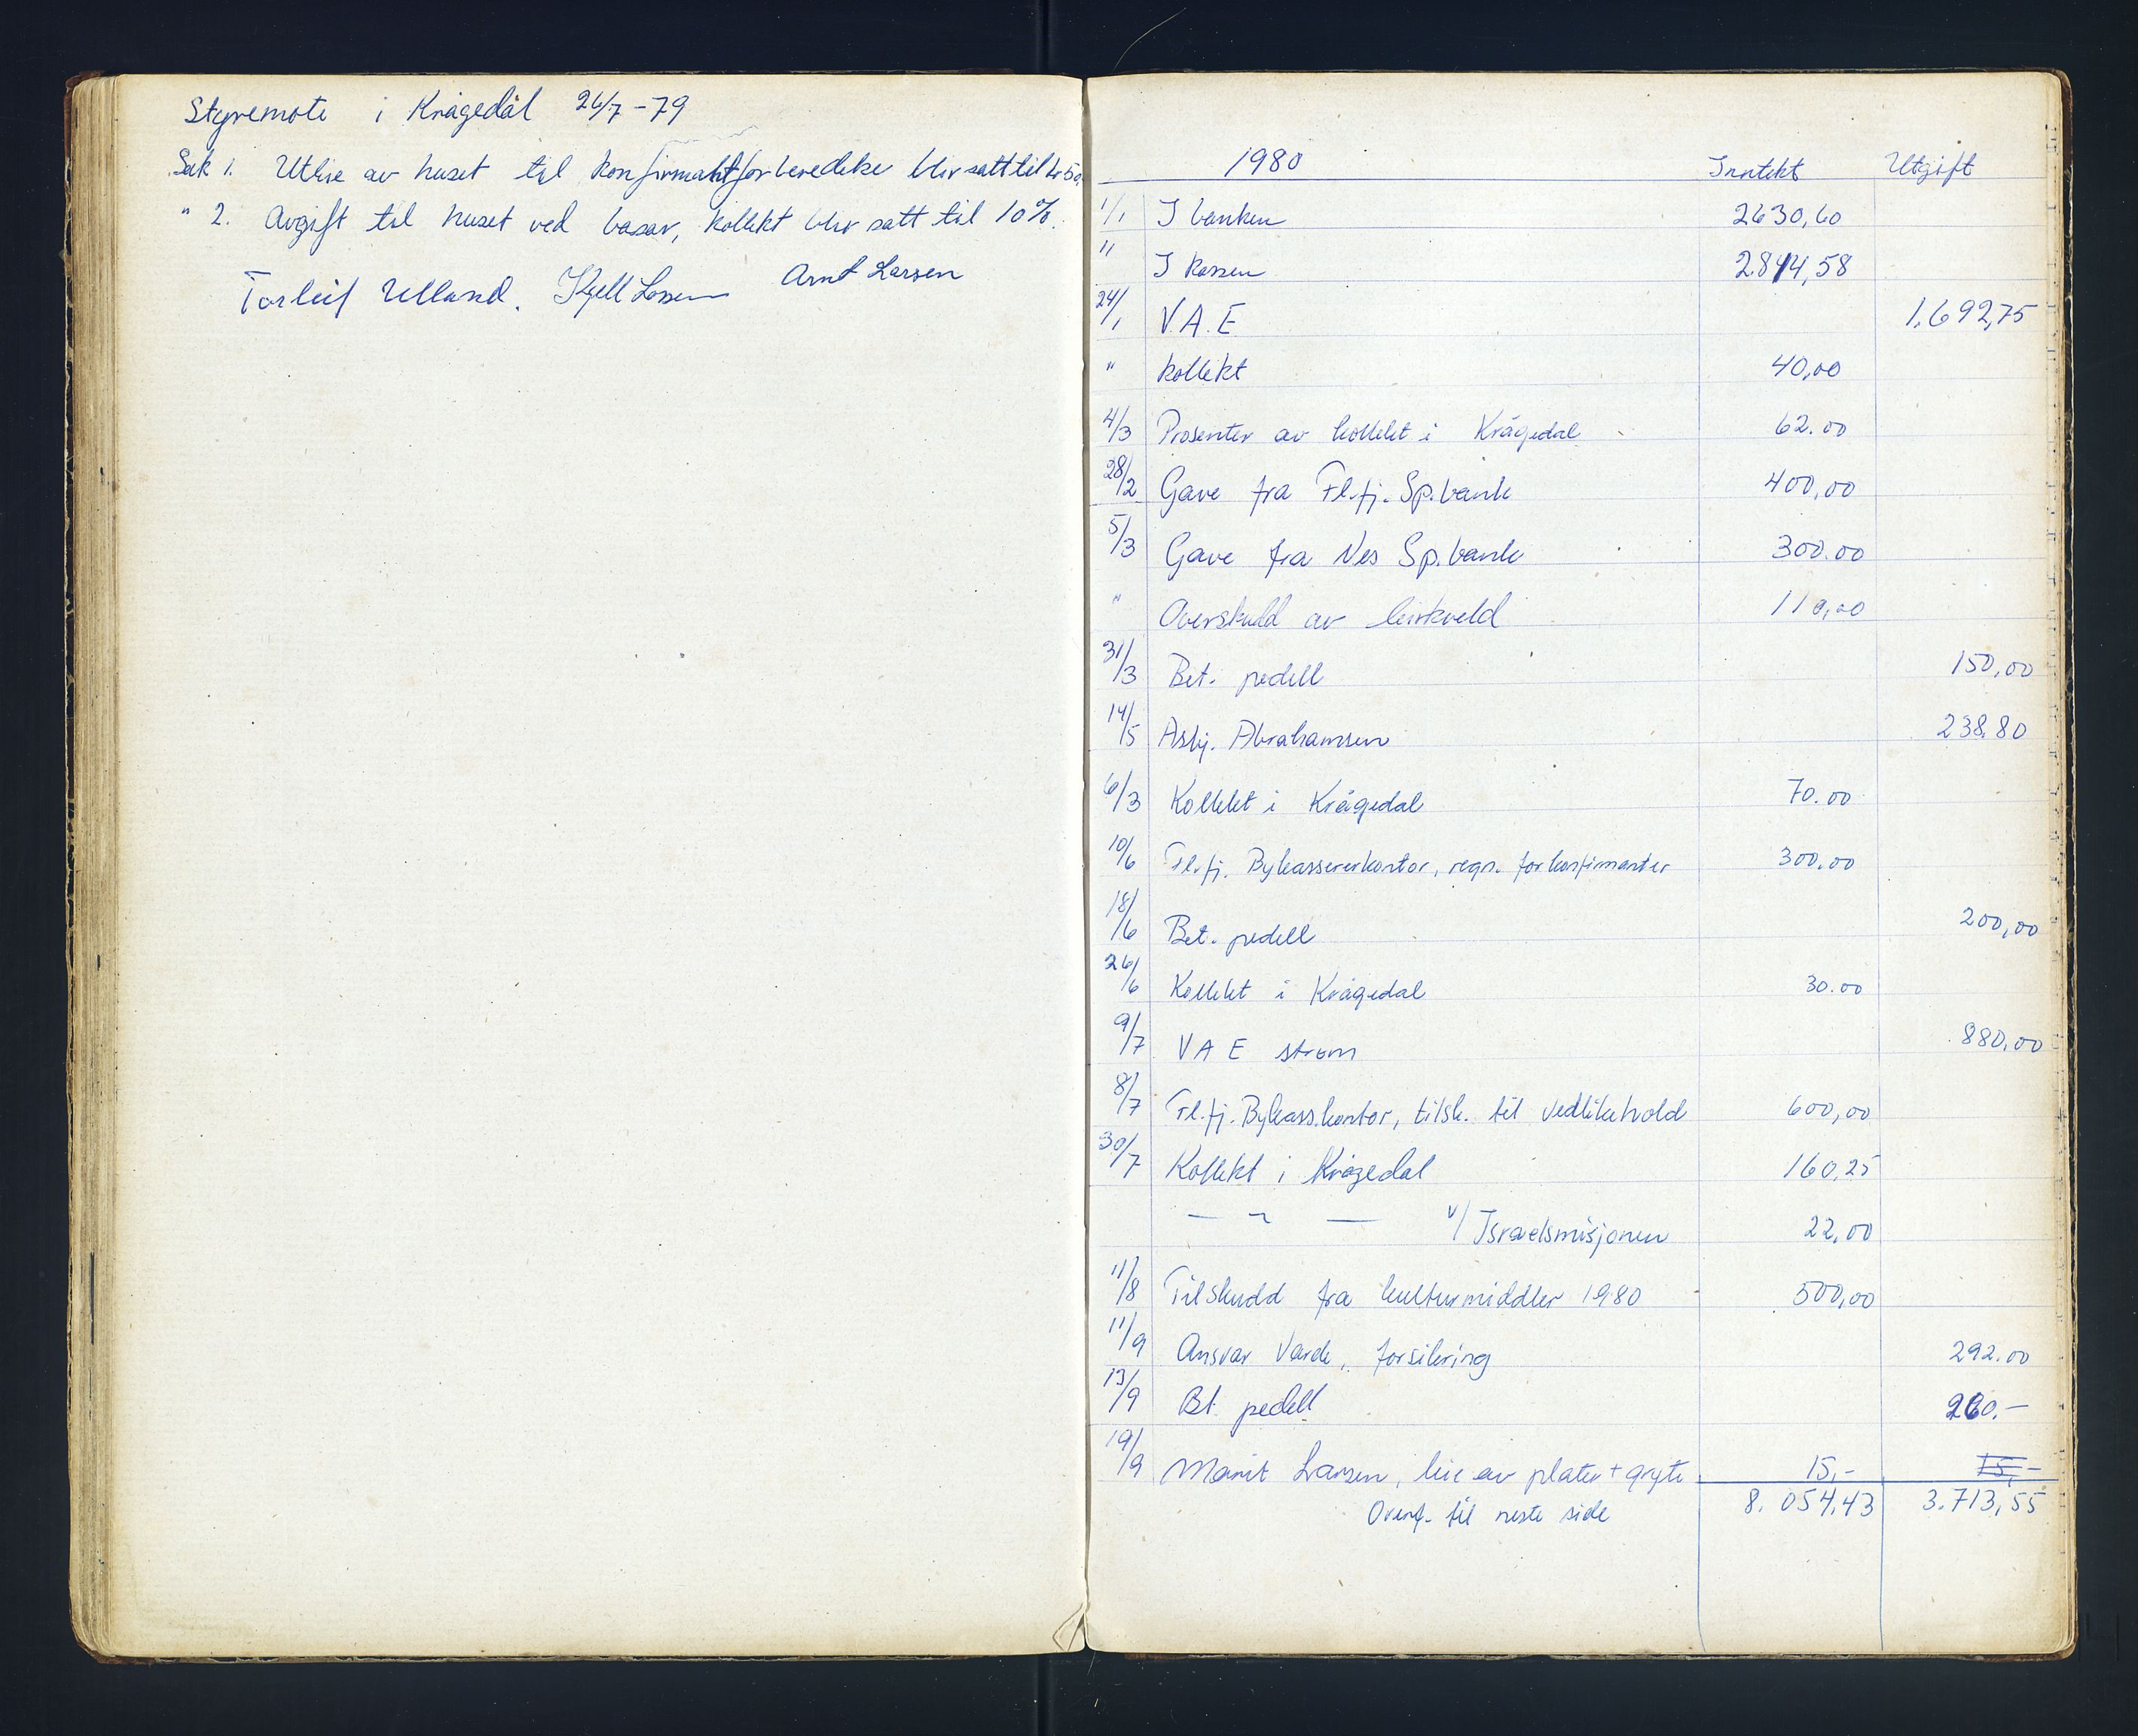 Styremøte i Krågedal 26/7 - 79
Sak 1. Utleie av huset til konfirmantforberedelse blir satt til kr 50,
" 2. Avgift til huset ved basar, kollekt blir satt til 10%.
Torleif Ulland. Kjell Larsen Arnt Larsen
1980 Inntekt Utgift
1/1 I banken 2630,60
" I kassen 2.814,58
24/1 V.A.E 1.692,75
" kollekt 40,00
4/3 Prosenter av kollekt i Krågedal 62.00
28/2 Gave fra Fl.fj. Sp.bank 400,00
5/3 Gave fra Nes Sp.bank 300.00
" Overskudd av leirkveld 110,00
31/3 Bet. pedell 150,00
14/5 Asbj. Abrahamsen 238.80
6/3 Kollekt i Krågedal 70.00
10/6 Fl.fj. Bykassererkontor, regn. for konfirmanter 300,00
18/6 Bet. pedell 200,00
26/6 Kollekt i Krågedal 30.00
9/7 V A E strøm 880,00
8/7 Fl.fj. Bykass.kontor, tilsk. til vedlikehold 600,00
30/7 Kollekt i Krågedal 160,25
— " — v/ Israelsmisjonen 22,00
11/8 Tilskudd fra kulturmidler 1980 500,00
11/9 Ansvar Varde, forsikring 292.00
13/9 Bt. pedell 260.-
19/9 Marit Larsen, leie av plater + gryte 15,- 15,-
Overf. til neste side 8.054,43 3.713,55